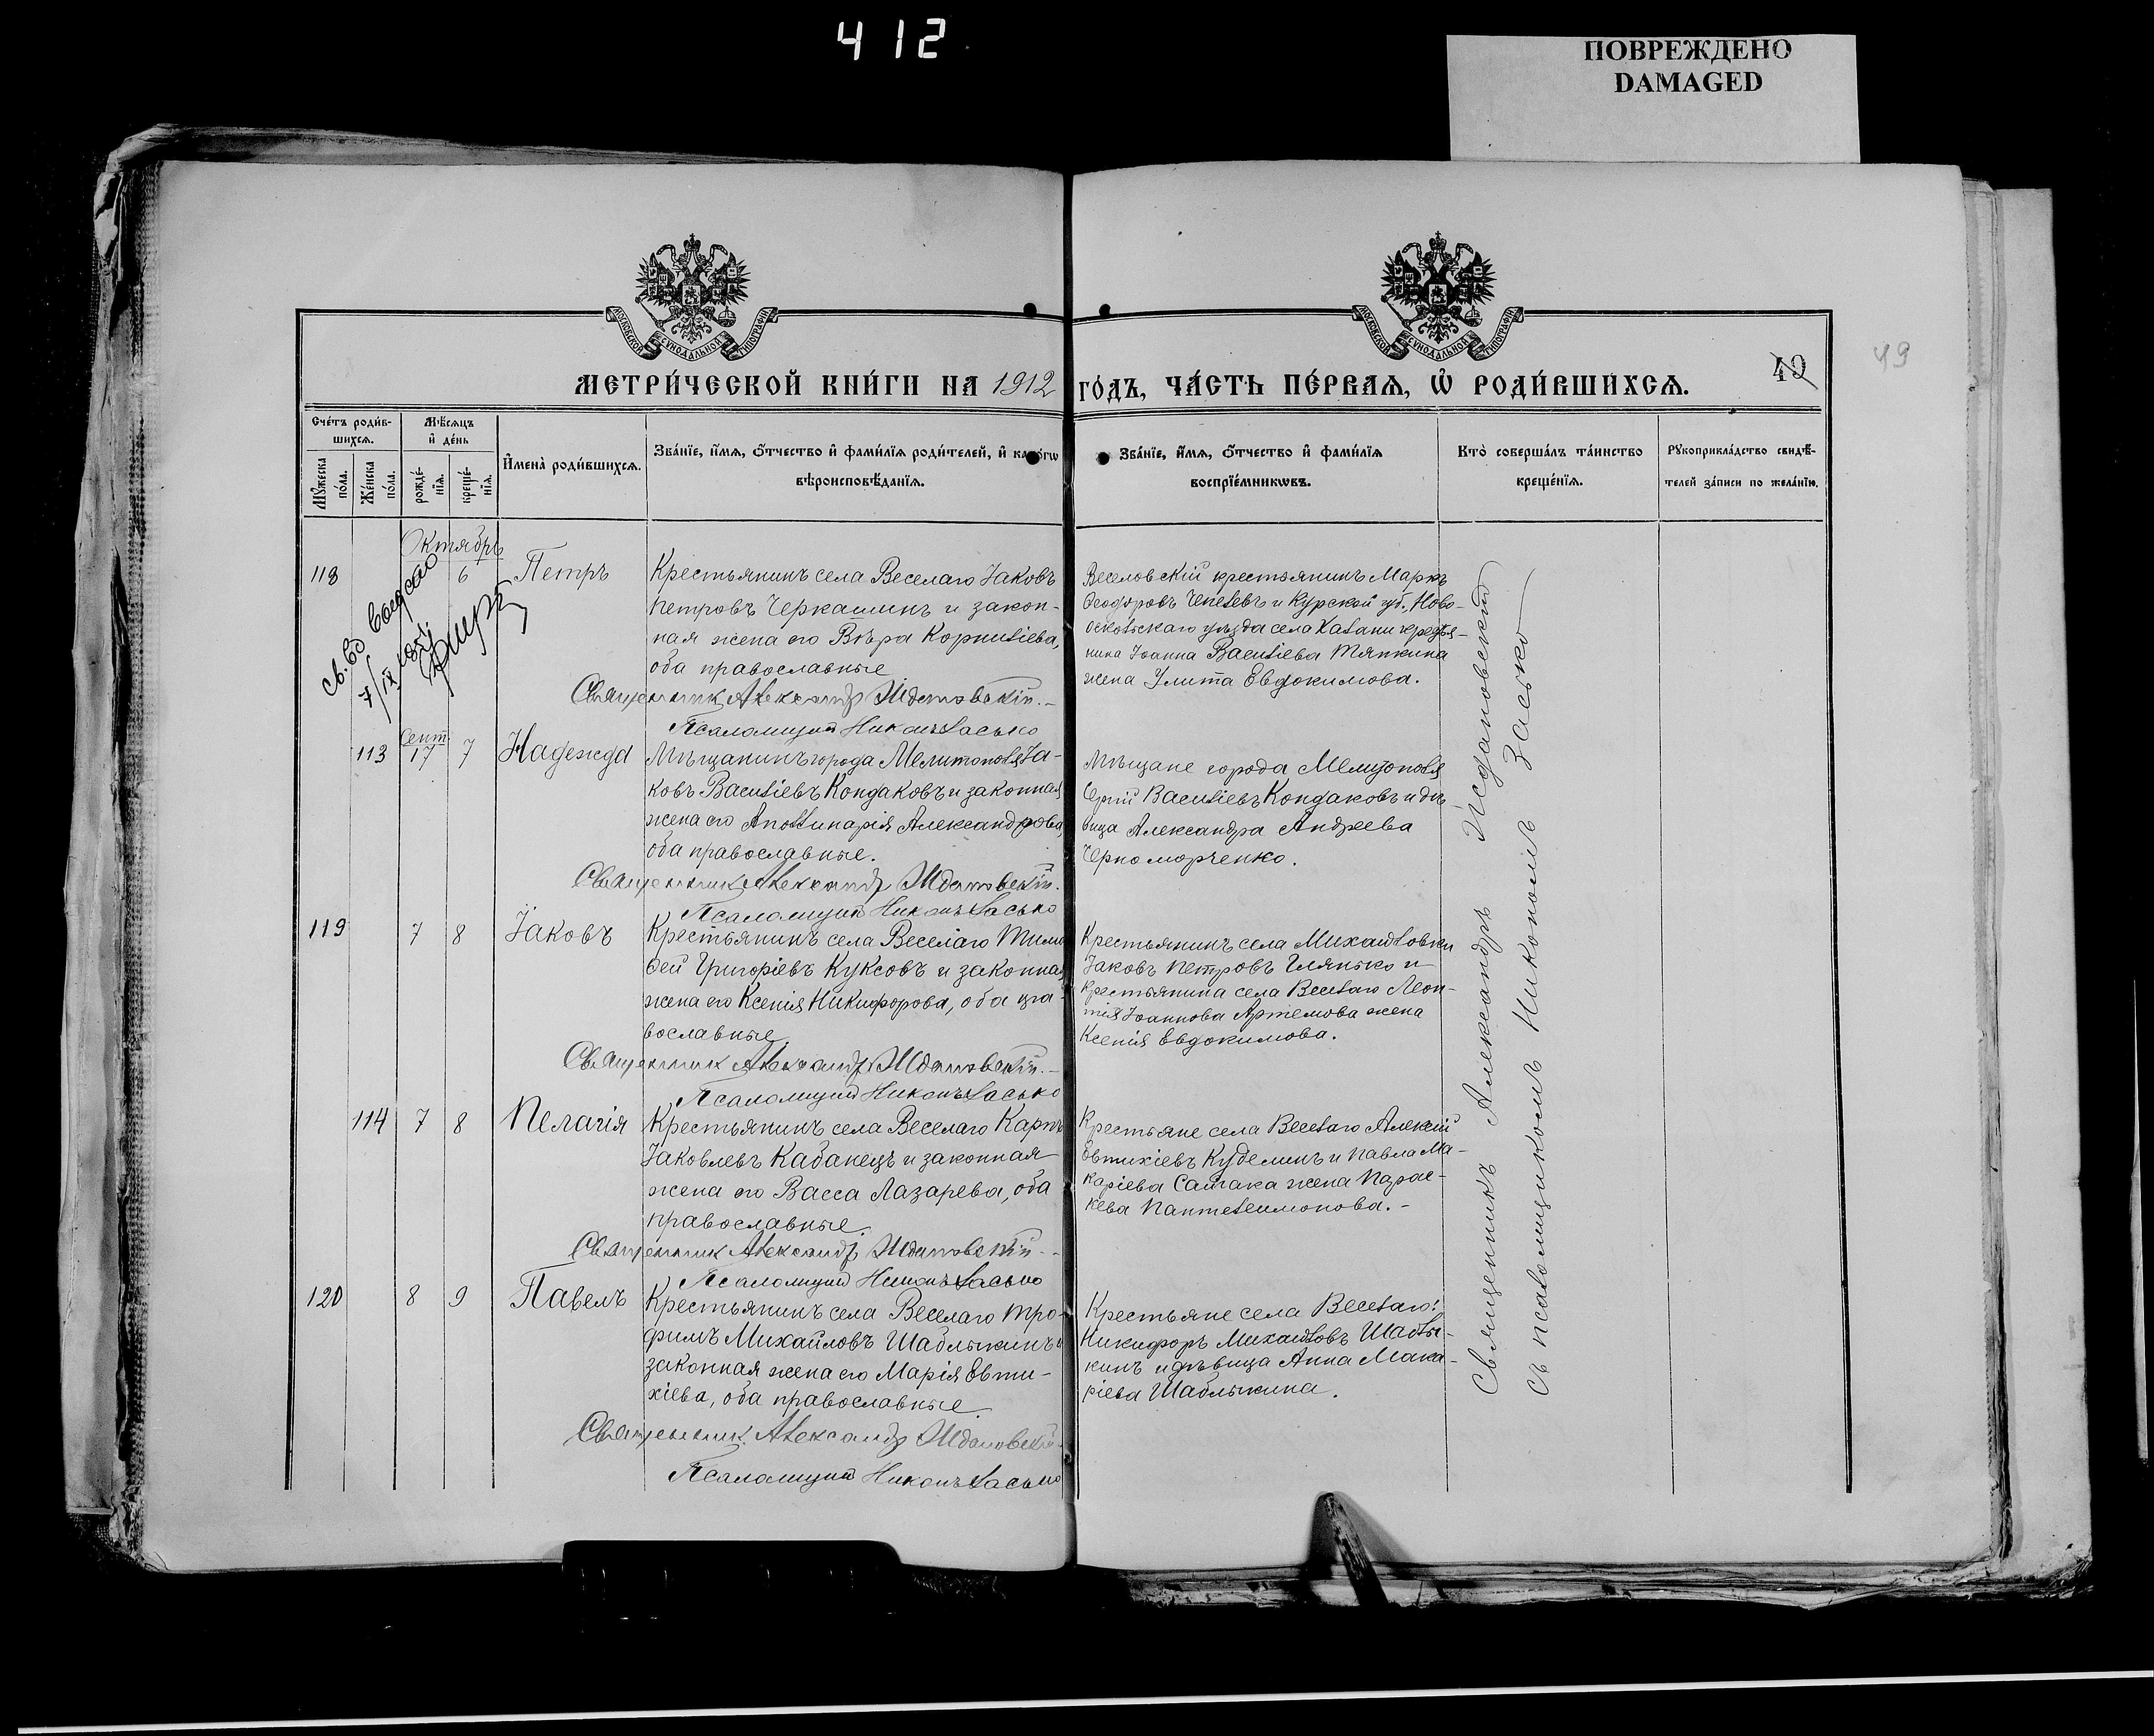 412
ПОВРЕЖДЕНО
DAMAGED
МОСКОВСКОЙ СѴНОДАЛЬНОЙ ТИПОГРАФІИ
МОСКОВСКОЙ СѴНОДАЛЬНОЙ ТИПОГРАФІИ
МЕТРИ́ЧЕСКОЙ КНИ́ГИ НА 1912 ГО́ДЪ, ЧА́СТЬ ПЕ́РВАЯ, Ѽ РОДИ́ВШИХСЯ.
49
49
Сче́тъ роди́в-
шихся.
Мѣ́сяцъ
и҆ де́нь
Мꙋ́жеска
по́ла.
Же́нска
по́ла.
рожде́-
нїя.
креще́-
нїя.
И҆мена̀ роди́вшихся.
Зва́нїе, и҆́мя, ѻ҆́тчество и҆ фами́лїя роди́телей, и҆ како́гѡ
вѣроисповѣ́данїя.
Зва́нїе, и҆́мя, ѻ҆́тчество и҆ фами́лїя
воспрїе́мникѡвъ.
Кто̀ соверша́лъ та́инство
креще́нїя.
Рꙋкоприкла́дство свидѣ́-
телей за́писи по жела́нїю.
Октябрь
118
6
Петръ
Крестьянинъ села Веселаго Іаковъ
Петровъ Черкашинъ и закон-
ная жена его Вѣра Корниліева,
оба православные
Священник Александр Ждановскій.
Псаломщик Никон Засько
Веселовскій крестьянинъ Маркъ
Ѳеодоровъ Чепелевъ и Курской губ., Ново-
оскольскаго уѣзда села Халани крестья-
нина Іоанна Василіева Тяпкина
жена Улита Евдокимова.
Св. Вд
7/IX
Сент.
113
17
7
Надежда
Мѣщанинъ города Мелитополя Іа-
ковъ Василіевъ Кондаковъ и законная
жена его Аполлинарія Александрова,
оба православные.
Священник Александр Ждановскій.
Псаломщик Никон Засько
Мѣщане города Мелитополя
Сергій Василіевъ Кондаковъ и дѣ-
вица Александра Андреева
Черноморченко.
119
7
8
Іаковъ
Крестьянинъ села Веселаго Тимо-
ѳей Григоріевъ Куксовъ и законная
жена его Ксенія Никифорова, оба пра-
вославные
Священник Александр Ждановскій.
Псаломщик Никон Засько
Крестьянинъ села Михайловки
Іаковъ Петровъ Глянько и
крестьянина села Веселаго Леон-
тія Іоаннова Артемова жена
Ксенія Евдокимова.
114
7
8
Пелагія
Крестьянинъ села Веселаго Карпъ
Іаковлевъ Кабанецъ и законная
жена его Васса Лазарева, оба
православные.
Священник Александр Ждановскій.
Псаломщик Никон Засько
Крестьяне села Веселаго Алексій
Евтихіевъ Куделинъ и Павла Ма-
каріева Самака жена Парас-
кева Пантелеимонова.
120
8
9
Павелъ
Крестьянинъ села Веселаго Тро-
фимъ Михайловъ Шаблыкинъ и
законная жена его Марія Евти-
хіева, оба православные
Священник Александр Ждановскій.
Псаломщик Никон Засько
Крестьяне села Веселаго:
Никифоръ Михайловъ Шаблы-
кинъ и дѣвица Анна Мака-
ріева Шаблыкина.
Священникъ Александръ Ждановскій
съ псаломщикомъ Никономъ Засько